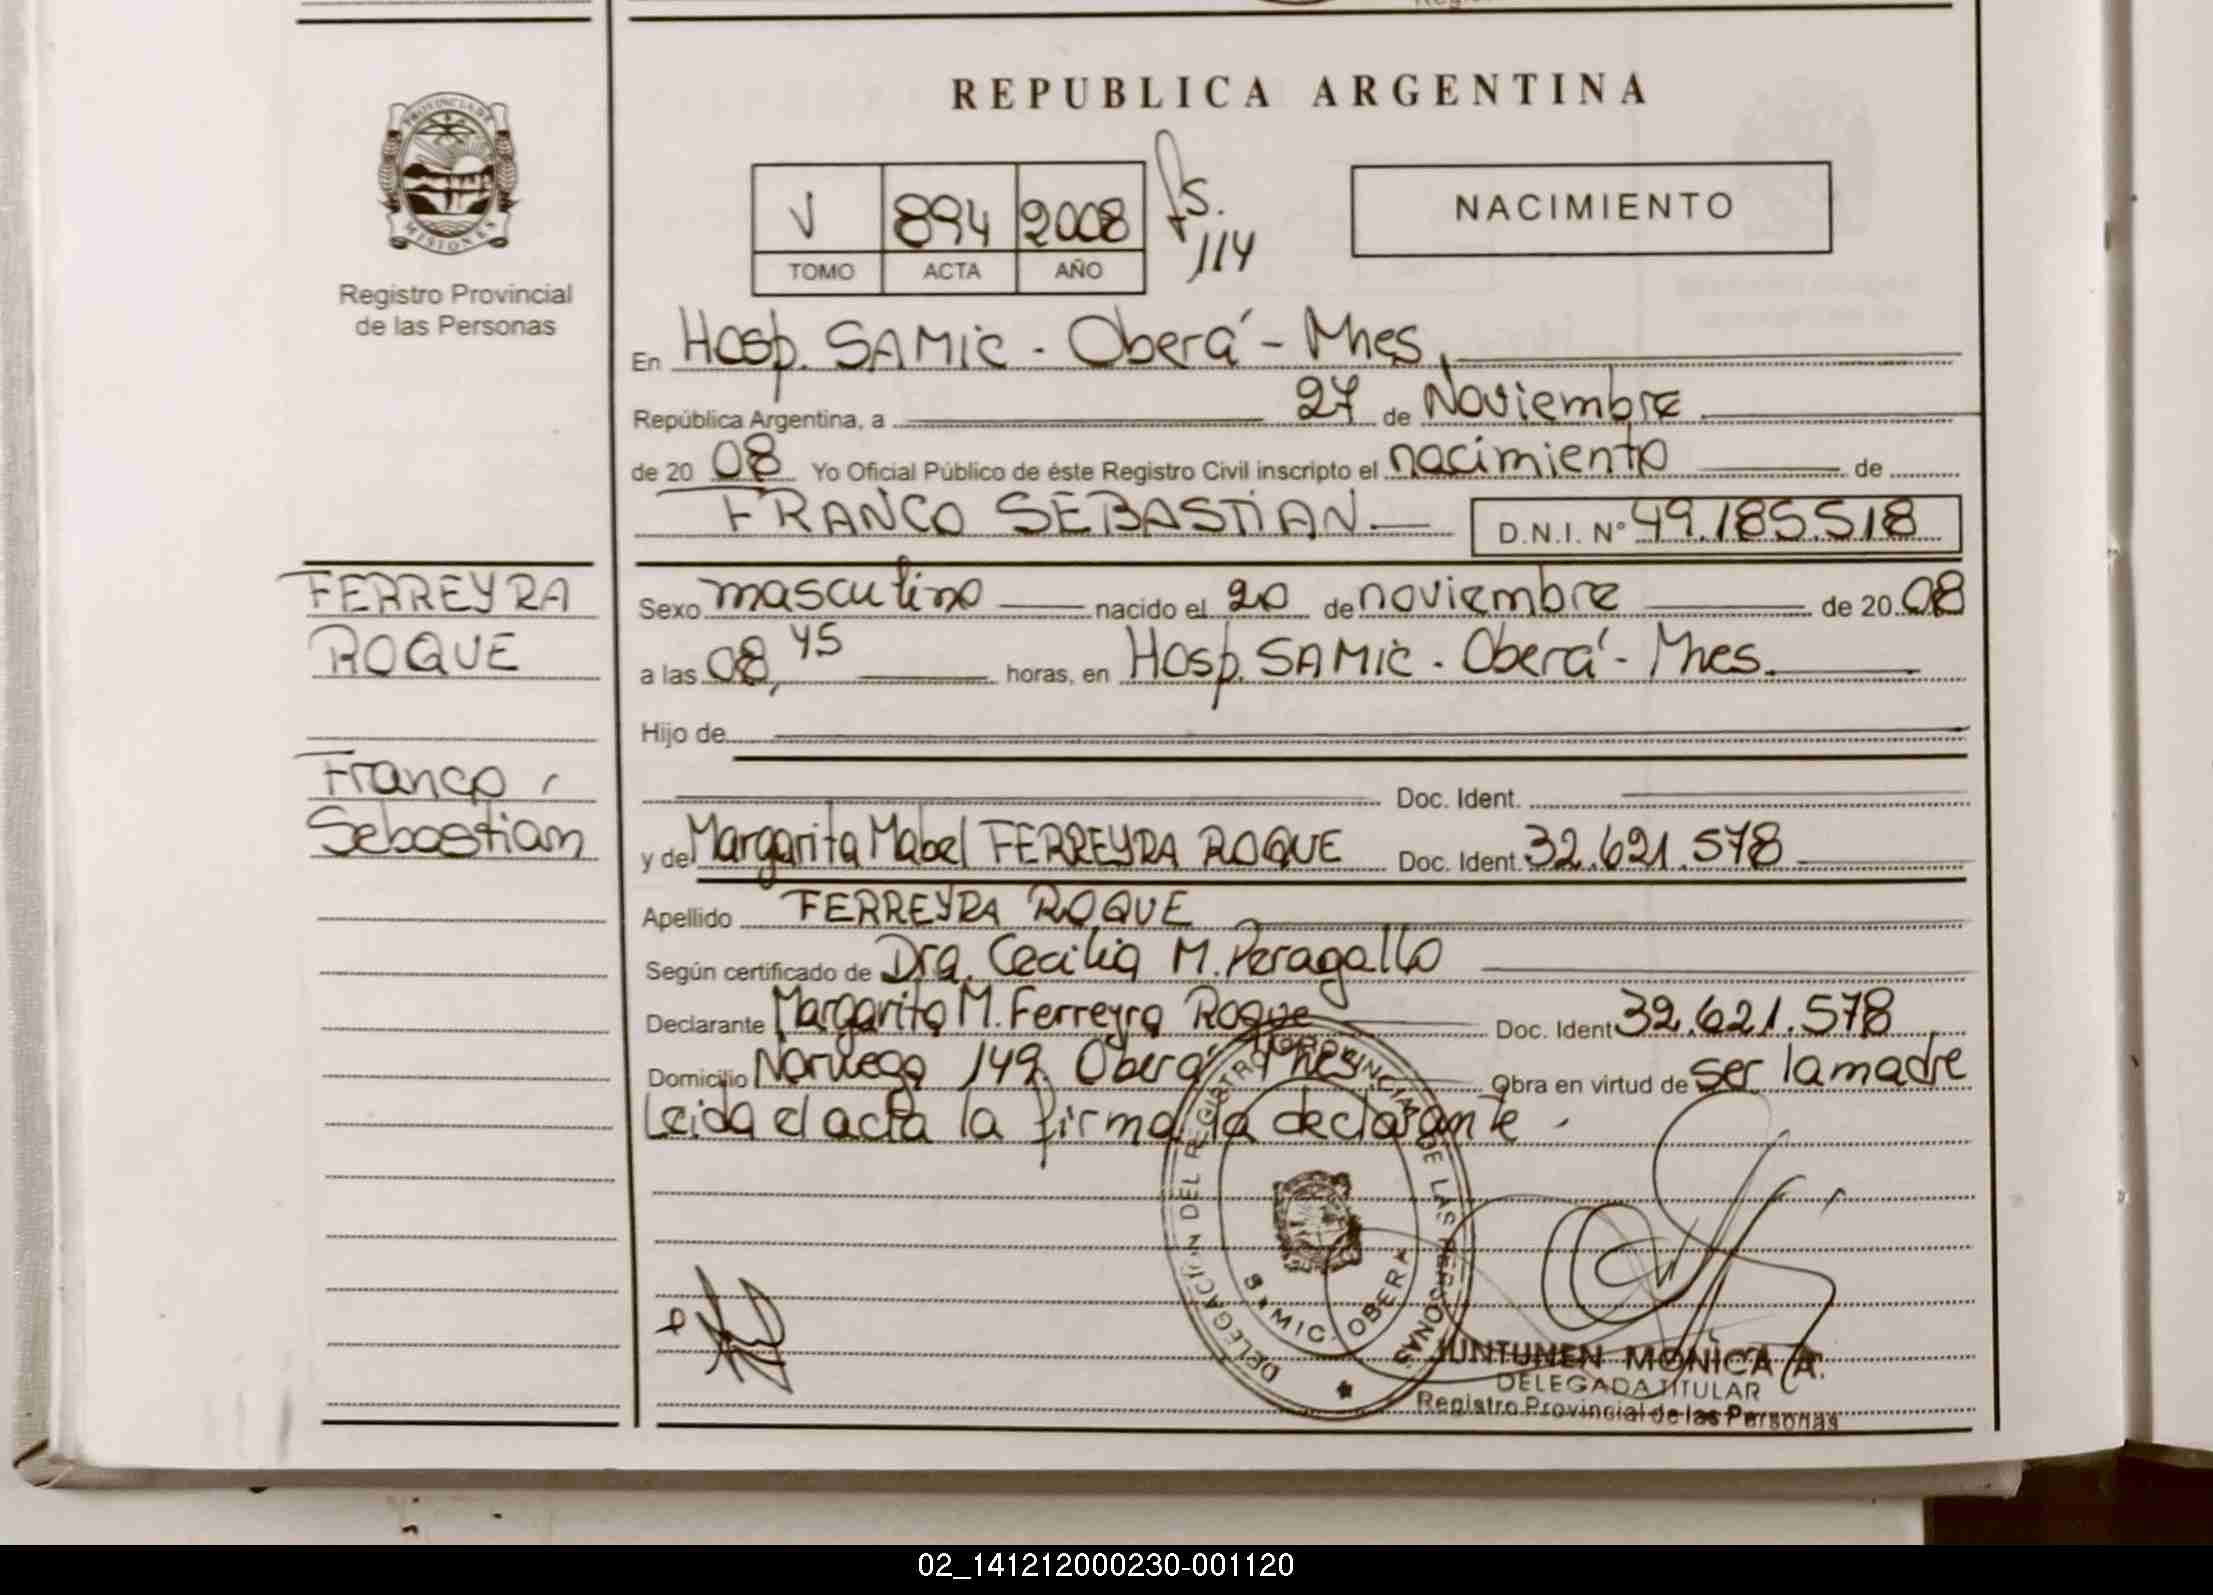 REPUBLICA ARGENTINA
PROVINCIA DE MISIONES
Registro Provincial
de las Personas
V 894 2008 fs. 114
TOMO ACTA AÑO
NACIMIENTO
En Hosp. SAMIC - Oberá - Mnes.
República Argentina, a 27 de Noviembre
de 20 08 Yo Oficial Público de éste Registro Civil inscripto el nacimiento de
FRANCO SEBASTIAN D.N.I. Nº 49.185.518
FERREYRA
ROQUE
Franco
Sebastian
Sexo masculino nacido el 20 de noviembre de 20 08
a las 08,45 horas, en Hosp. SAMIC - Oberá - Mnes.
Hijo de
Doc. Ident.
y de Margarita Mabel FERREYRA ROQUE Doc. Ident. 32.621.578
Apellido FERREYRA ROQUE
Según certificado de Dra. Cecilia M. Peragallo
Declarante Margarita M. Ferreyra Roque Doc. Ident 32.621.578
Domicilio Noruega 149. Oberá Mnes Obra en virtud de ser la madre
Leida el acta la firma la declarante -
DELEGACION DEL REGISTRO PROVINCIAL DE LAS PERSONAS
OBERA
JUNTUNEN MONICA A.
DELEGADA TITULAR
Registro Provincial de las Personas
02_141212000230-001120